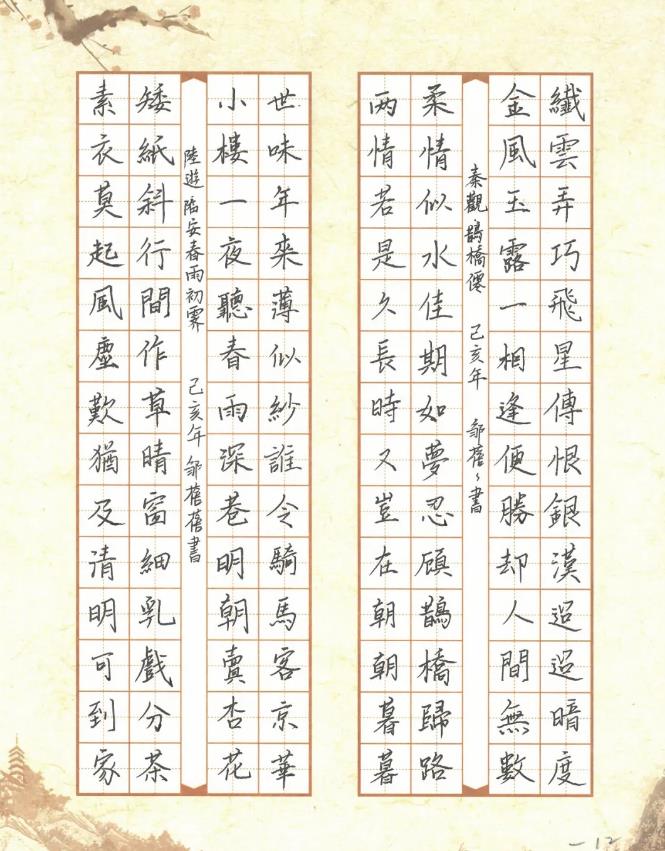 纖雲弄巧飛星傳恨銀漢迢迢暗度
金風玉露一相逢便勝却人間無數
秦觀 鵲橋僊 己亥年 鄒蓓〻書
柔情似水佳期如夢忍顧鵲橋歸路
两情若是久長時又豈在朝朝暮暮
世味年来薄似紗誰令騎馬客京華
小樓一夜聽春雨深巷明朝賣杏花
陸遊 临安春雨初霽 己亥年 鄒蓓蓓書
矮紙斜行間作草晴窗細乳戲分茶
素衣莫起風塵歎猶及清明可到家
-12